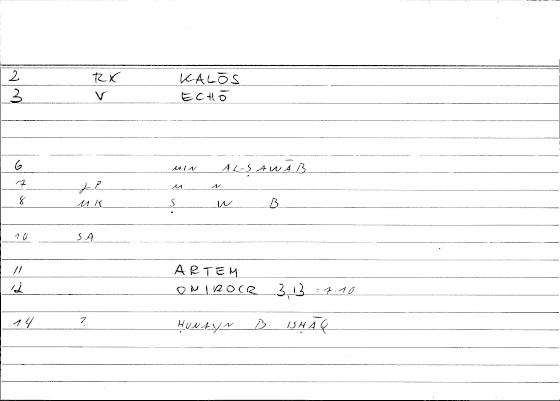 2 RK KALŌS
3 V ECHŌ
6 MIN AL-ṢAWĀB
7 JP M N
8 MK Ṣ W B
10 SA
11 ARTEM
12 ONIROCR 3,13 :
14 ? ḤUNAYN B. ISḤĀQ